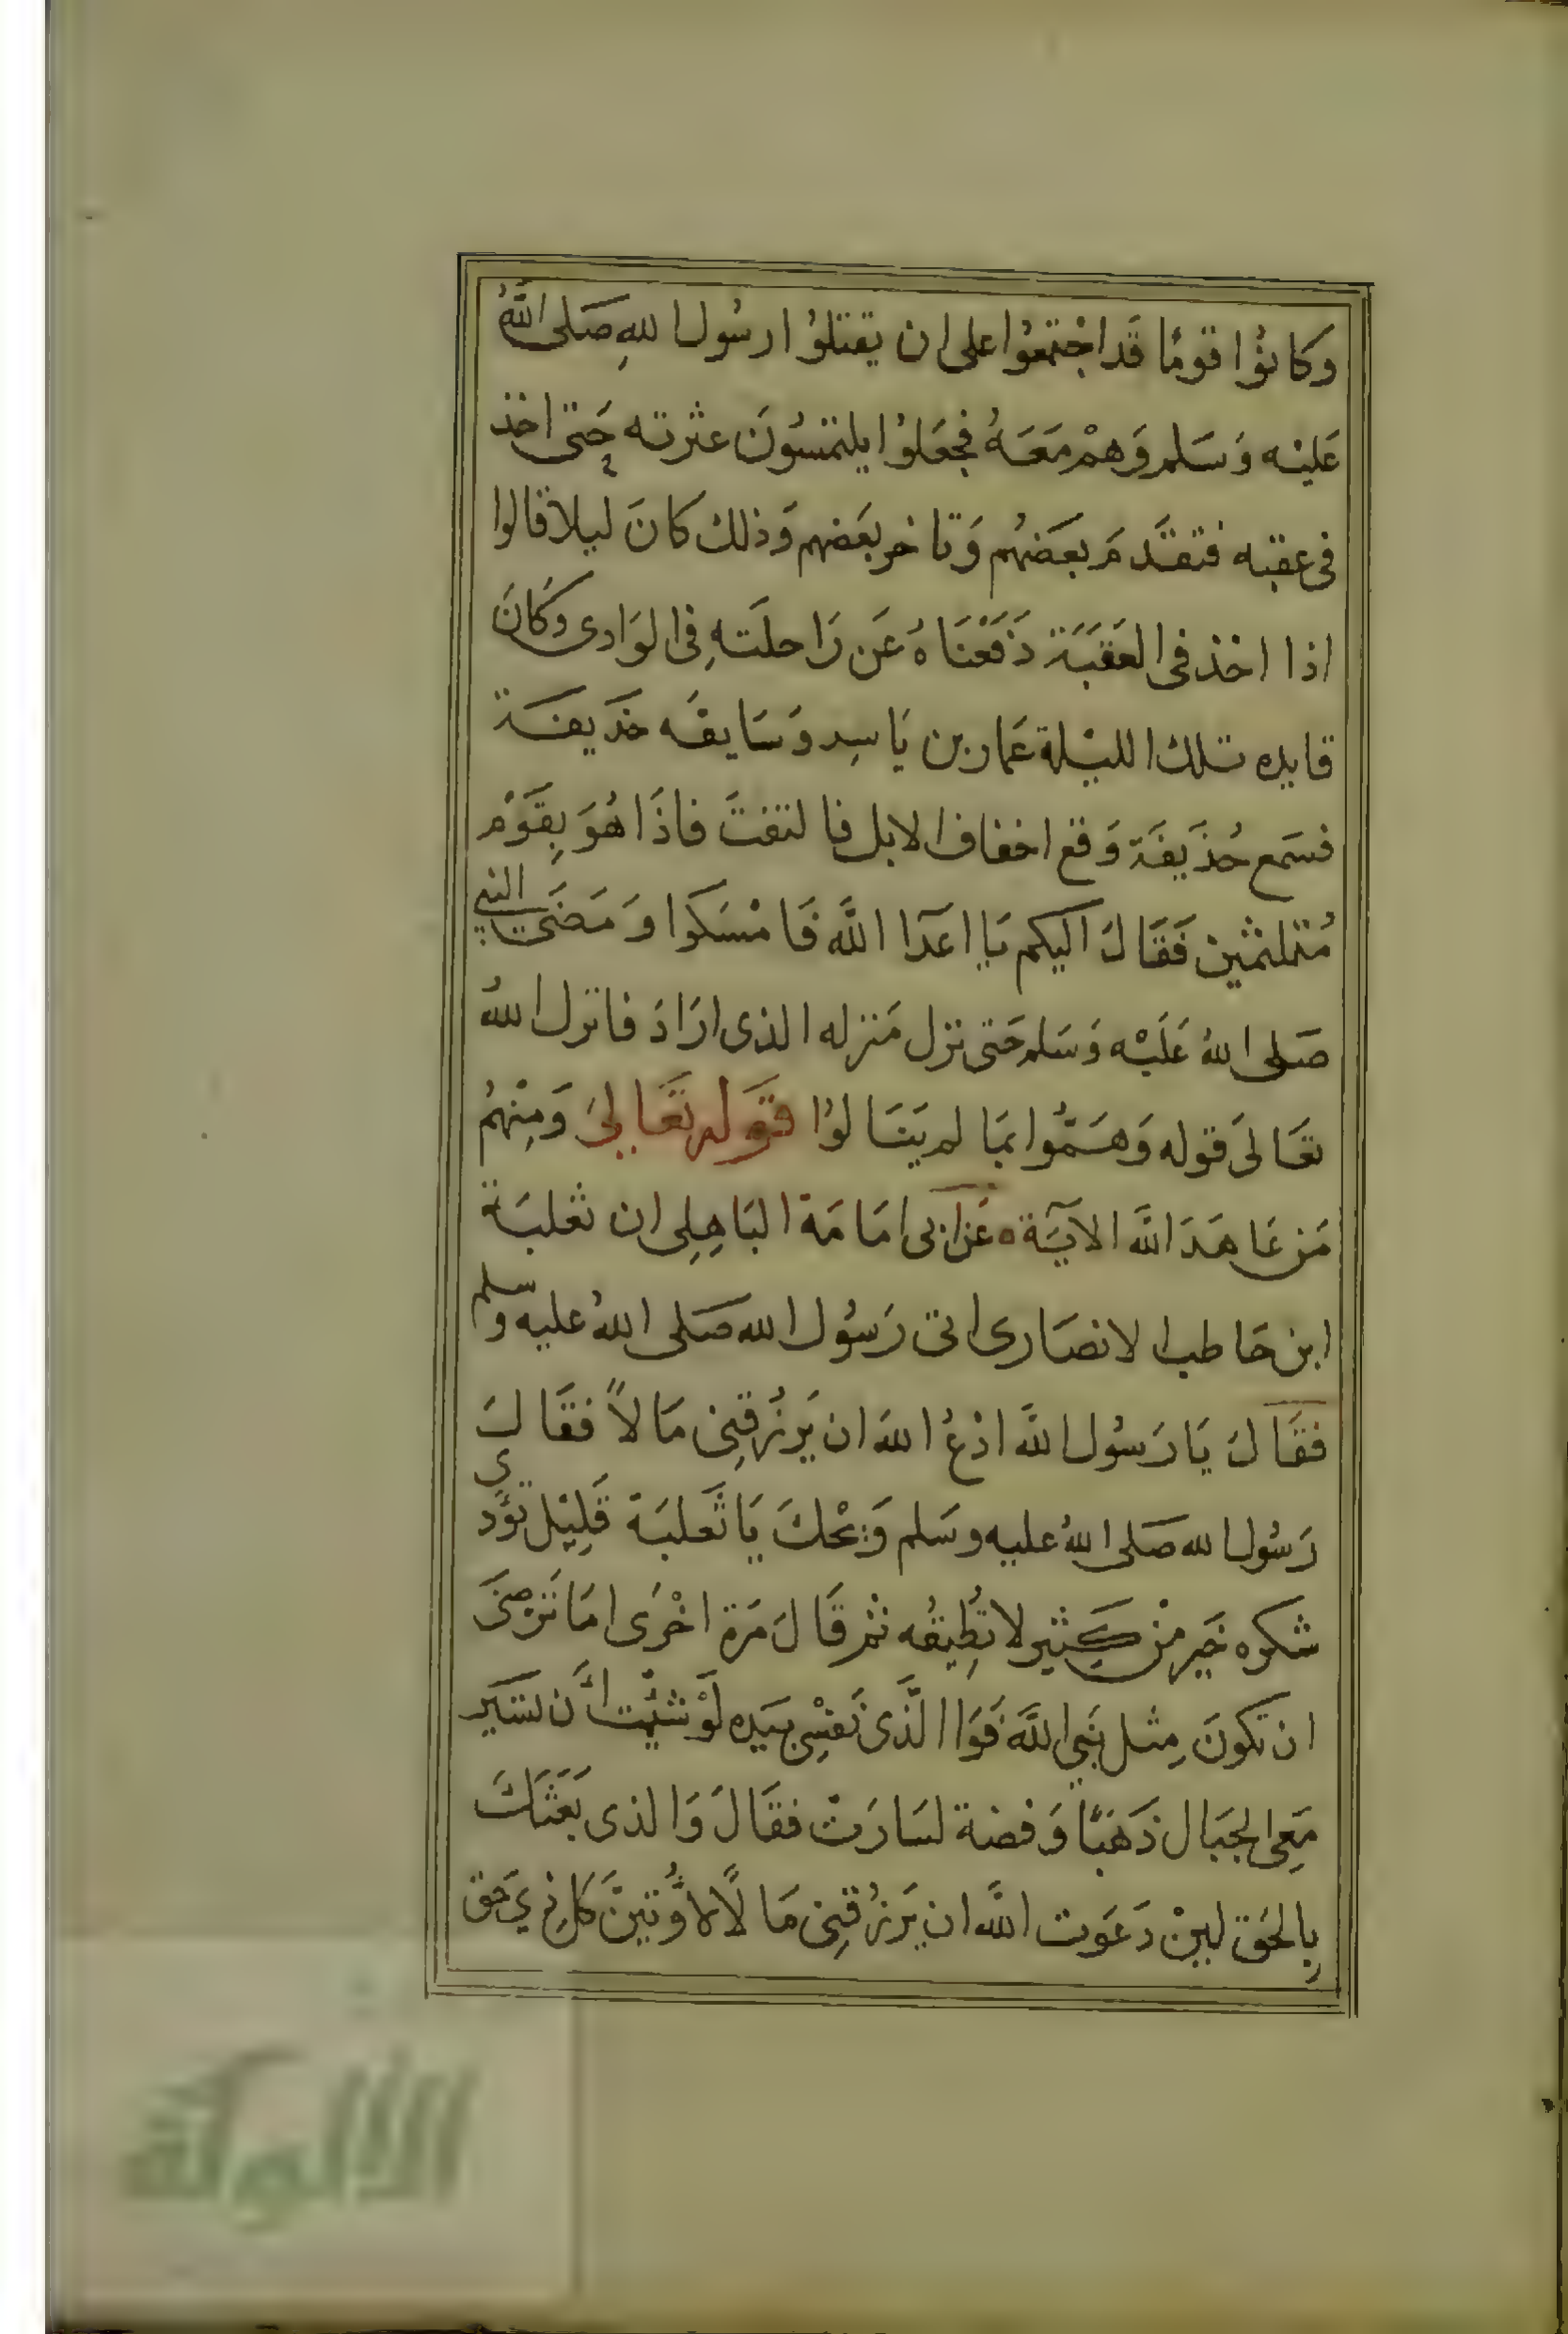 وكانوُا قومًا قَد اجْتمعُوا على ان يقتلوُا رسُول اللهِ صَلى اللَّهُ
عَليْه وَسَلم وَهمْ مَعَهُ فجعَلوُا يلتمسُونَ عثرته حَتى اخذ
فى عقبه فتقدمَ بعَضهُم وَتاخر بعَضهم وَذلك كانَ ليلا قالوا
اذا اخذ فى العَقبَة دَفَعْنَاهُ عَن رَاحلَتهِ فى الوَادى وَكَانَ
قايده تلك الليْلة عَمار بن يَاسِر وَسَايقه حذيفة
فسَمع حُذَيفَة وَقع اخفاف الابل فالتفتَ فاذَا هُوَ بِقَوْم
مُتلثمين فَقَالَ اليكم يا اعَدآا اللَّه فَامْسَكوا وَمَضَى النبي
صَلى اللهُ عَلَيْه وَسَلم حَتى نزل مَنزله الذى ارَادَ فانزل اللهُ
تعَالىَ قوله وَهمُّوا بمَا لم يَنَالوُا قوله تعَالىَ وَمِنْهمُ
مَن عَاهَدَ اللَّه الآيَة ه عَن ابى امَامَة البَاهِلِى ان ثعلبَة
ابن حَاطب الانصَارى اتى رَسُول الله صَلى اللهُ عليه وسلم
فقَالَ يَا رَسُول اللَّه ادْعُ اللهَ ان يَرزُقِنى مَالاً فقَالَ
رَسُول الله صَلى اللهُ عليه وسَلم وَيْحكَ يَا ثَعلبَة قَلِيْل تؤَدي
شكره خَير مِنْ كَثِير لا تُطِيقُه ثم قَالَ مَرَة اخْرَى امَا تَرضَى
ان تكونَ مِثل نَبِي اللَّه فَوَاالَّذى نَفسِْى بيَده لَوْ شئِْت أَن تسَير
مَعِى الجبَال ذَهَبًا وَفضة لسَارَتْ فقَالَ وَالذى بَعَثَكَ
بِالحَق لين دَعَوت اللَّه ان يَرزُقِنى مَالًا لاَُوتينَّ كَل ذِي حَق
الألوكة